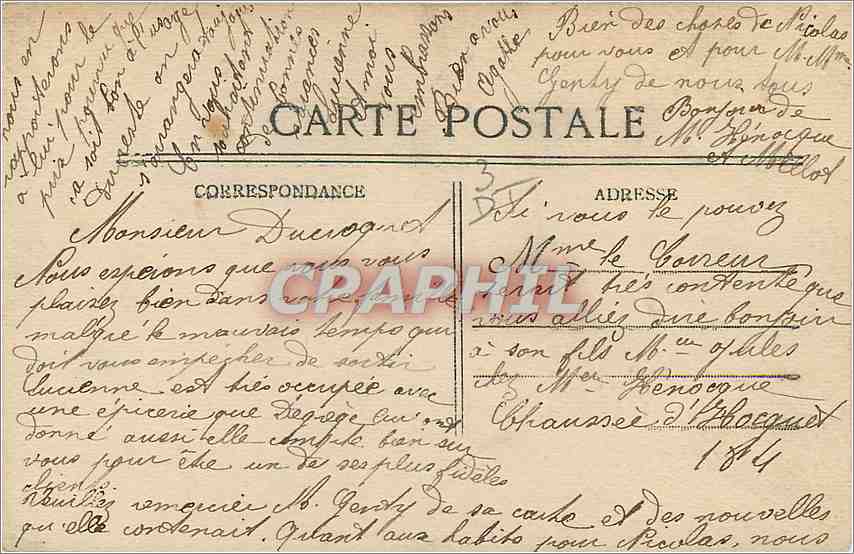 CARTE POSTALE
CORRESPONDANCE
Monsieur Ducrognet
Nous espérons que vous vous
plaisez bien dans votre
malgré le mauvais temps qui
doit vous empêcher de sortir
Lucienne est très occupée avec
une épicerie que lui ont
donné aussi elle compte bien sur
vous pour être un de ses plus fidèles
clients
Veuillez remercier M. Genty de sa carte et des nouvelles
qu'elle contenait. Quant aux habits pour Nicolas, nous
nous en
rapporterons
à lui pour le
prix
ça soit bon à l'usage
Du reste on
s'arrangera toujours
En vous
souhaitant
continuation
de bonnes
Lucienne
et moi
vous
embrassons
Bien à vous
Agathe
Bien des choses de Nicolas
pour vous et pour M. Mme
Genty de nous tous
Bonjour de
M. Hénocque
et
ADRESSE
3
Si vous le pouvez
Mme le Correur
serait très contente que
vous alliez dire bonjour
à son fils M. Jules
chez Mer Hénocque
Chaussée d'Hocquet
184
CPAPHIL